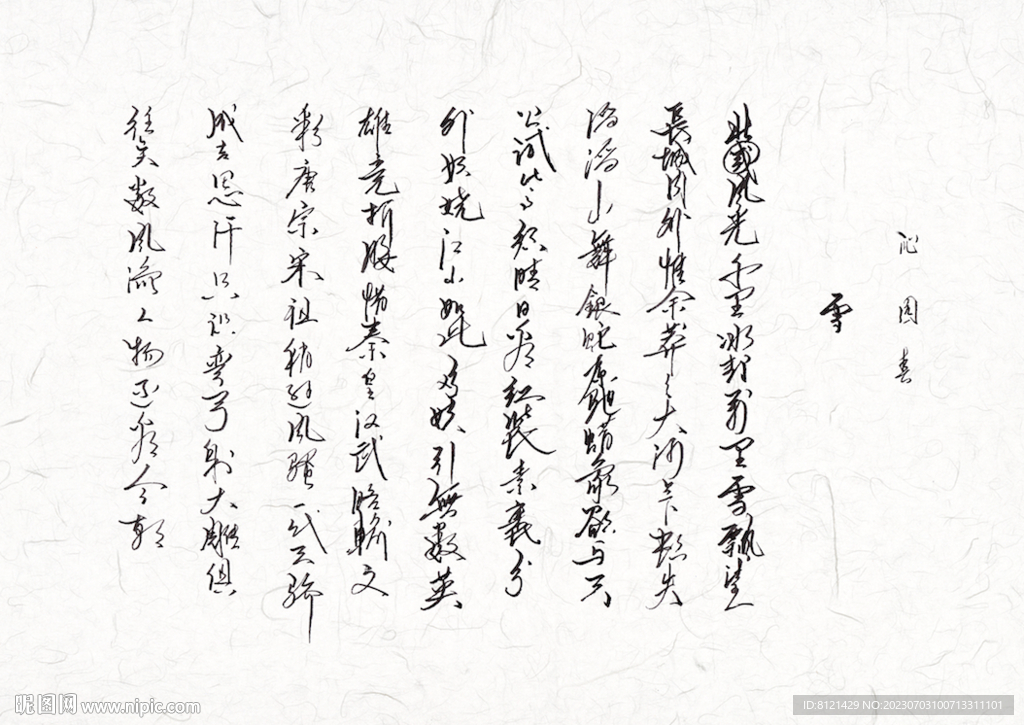 沁园春
雪
北國风光千里冰封万里雪飘望
長城内外惟余莽莽大河上下頓失
滔滔山舞銀蛇原馳蜡象欲与天
公試比高须晴日看红装素裹分
外妖娆江山如此多娇引無数英
雄竞折腰惜秦皇汉武略輸文
彩唐宗宋祖稍逊风骚一代天骄
成吉思汗只识弯弓射大雕俱
往矣数风流人物还看今朝
昵图网 www.nipic.com
ID:8121429 NO:20230703100713311101